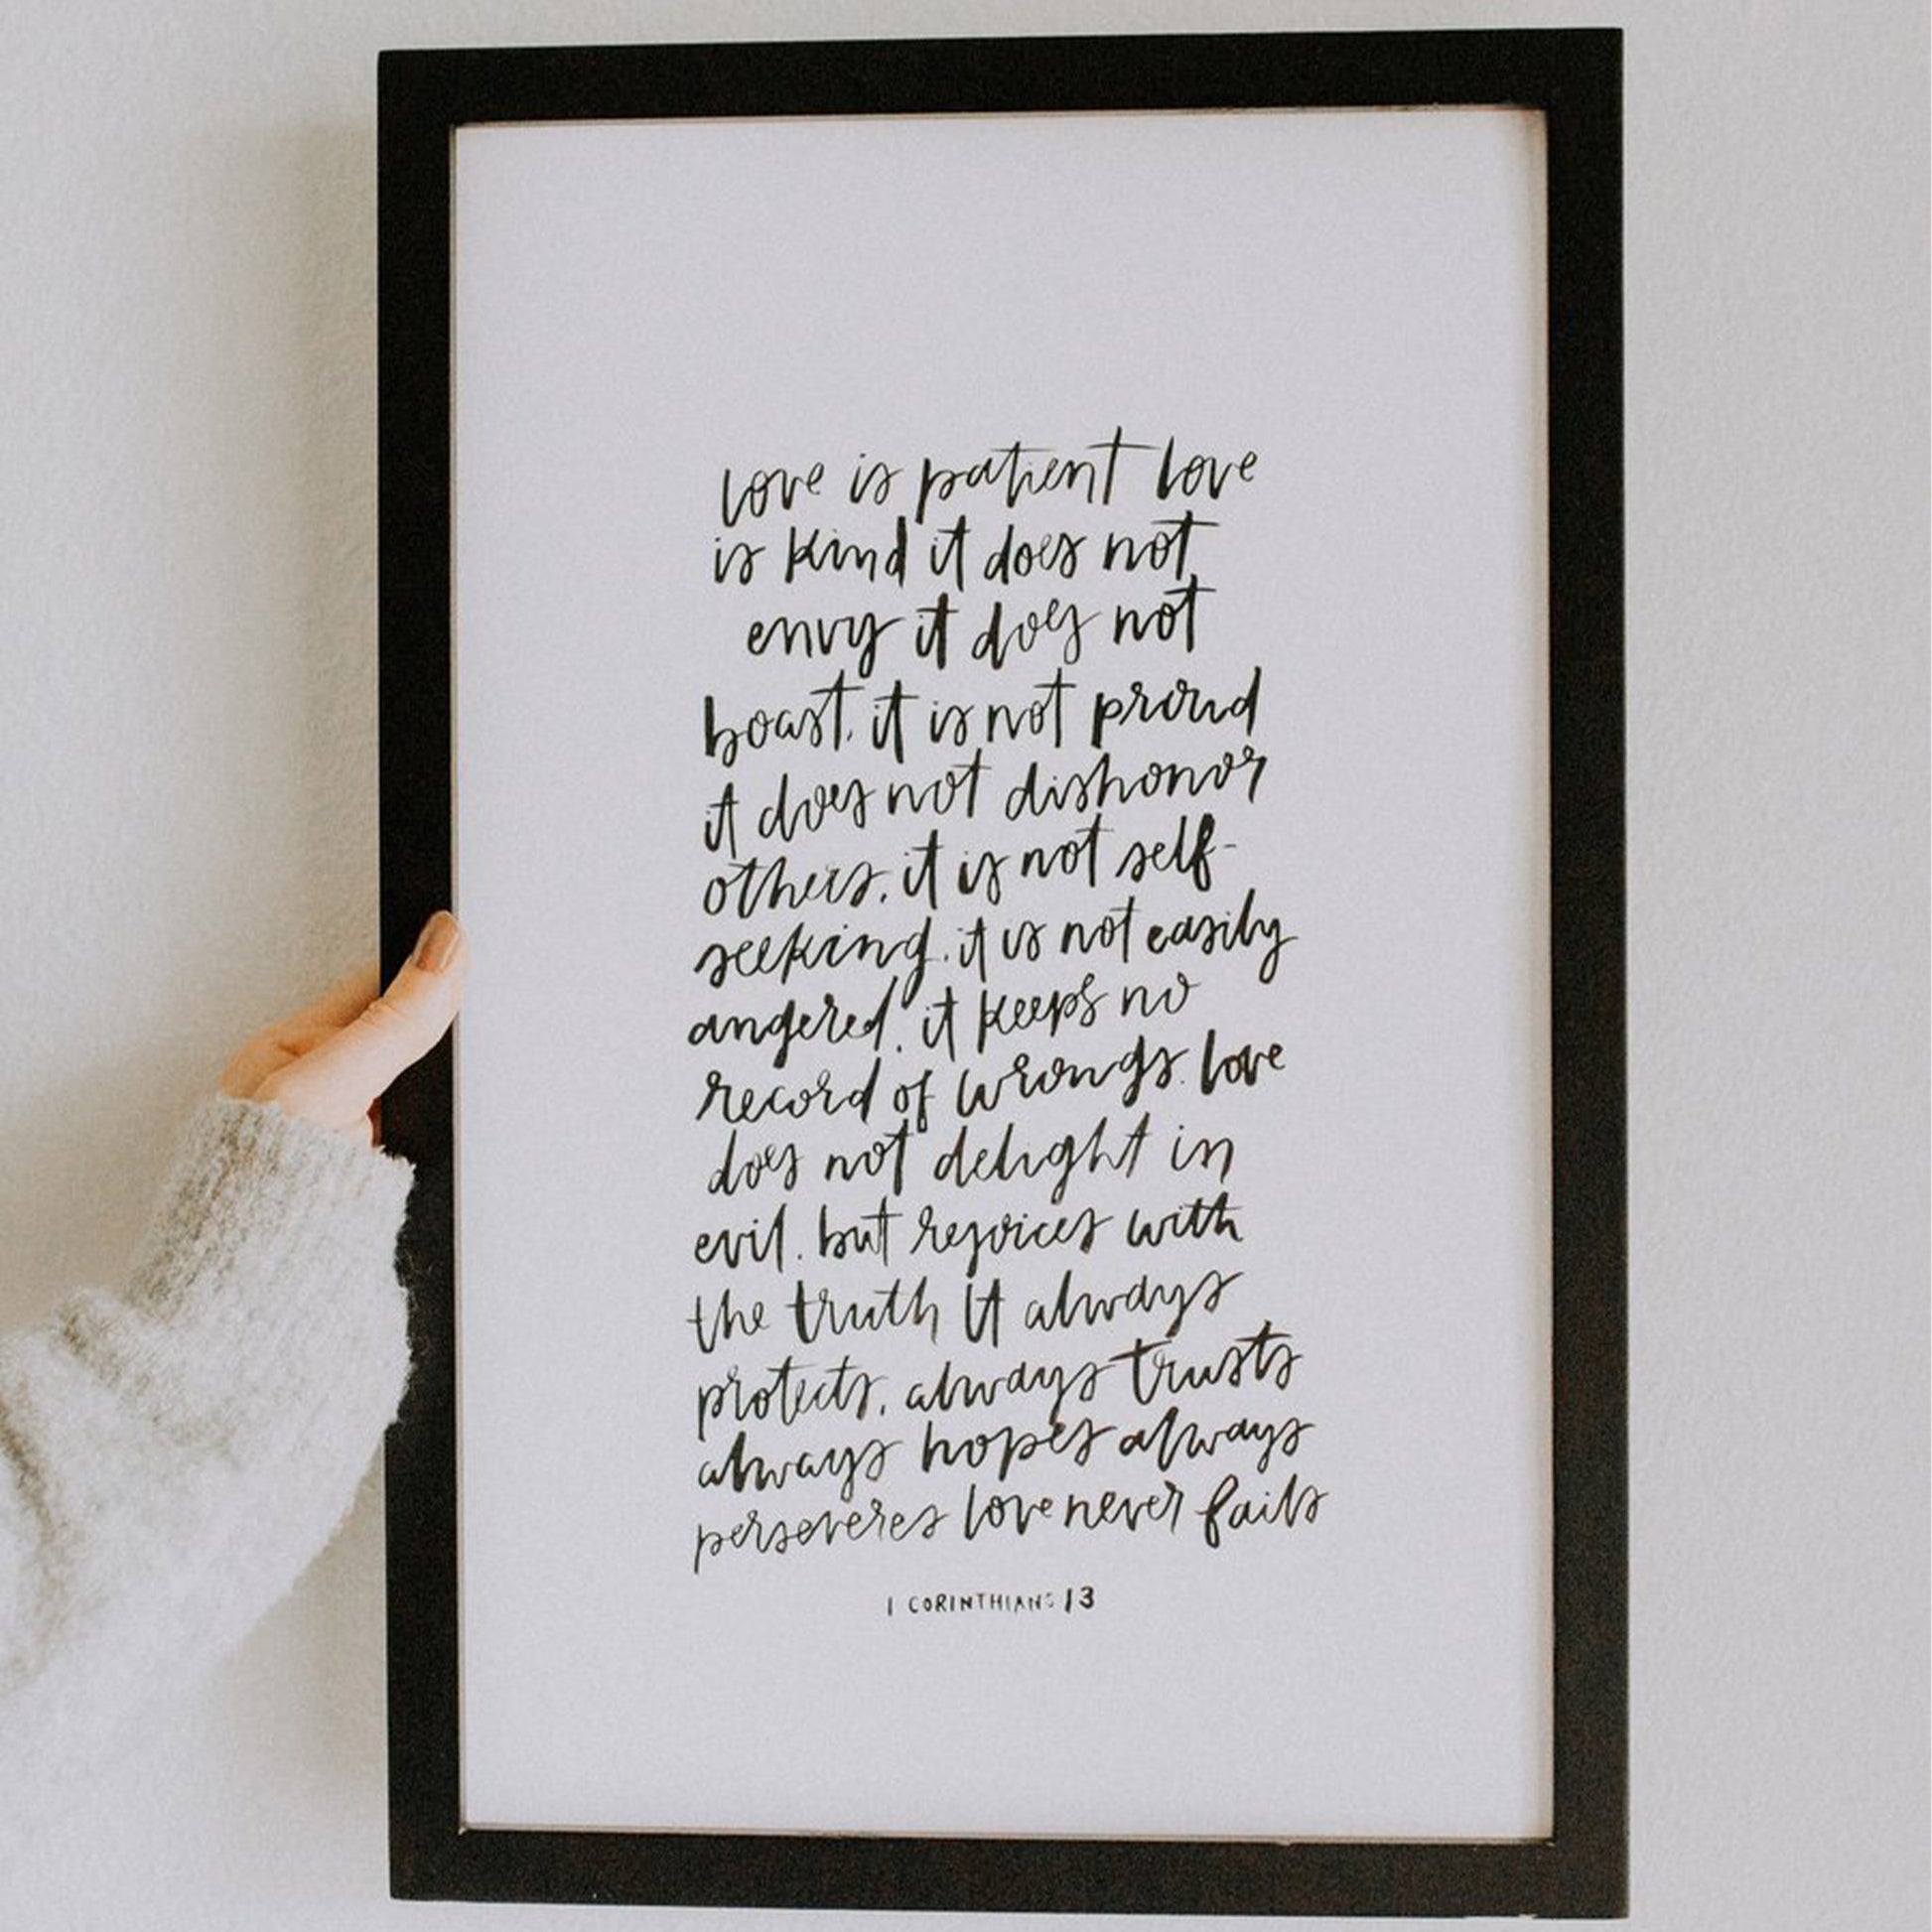 love is patient love
is kind it does not
envy it does not
boast. it is not proud
it does not dishonor
others. it is not self-
seeking. it is not easily
angered. it keeps no
record of wrongs. love
does not delight in
evil. but rejoices with
the truth It always
protects, always trusts
always hopes always
perseveres love never fails
1 CORINTHIANS 13